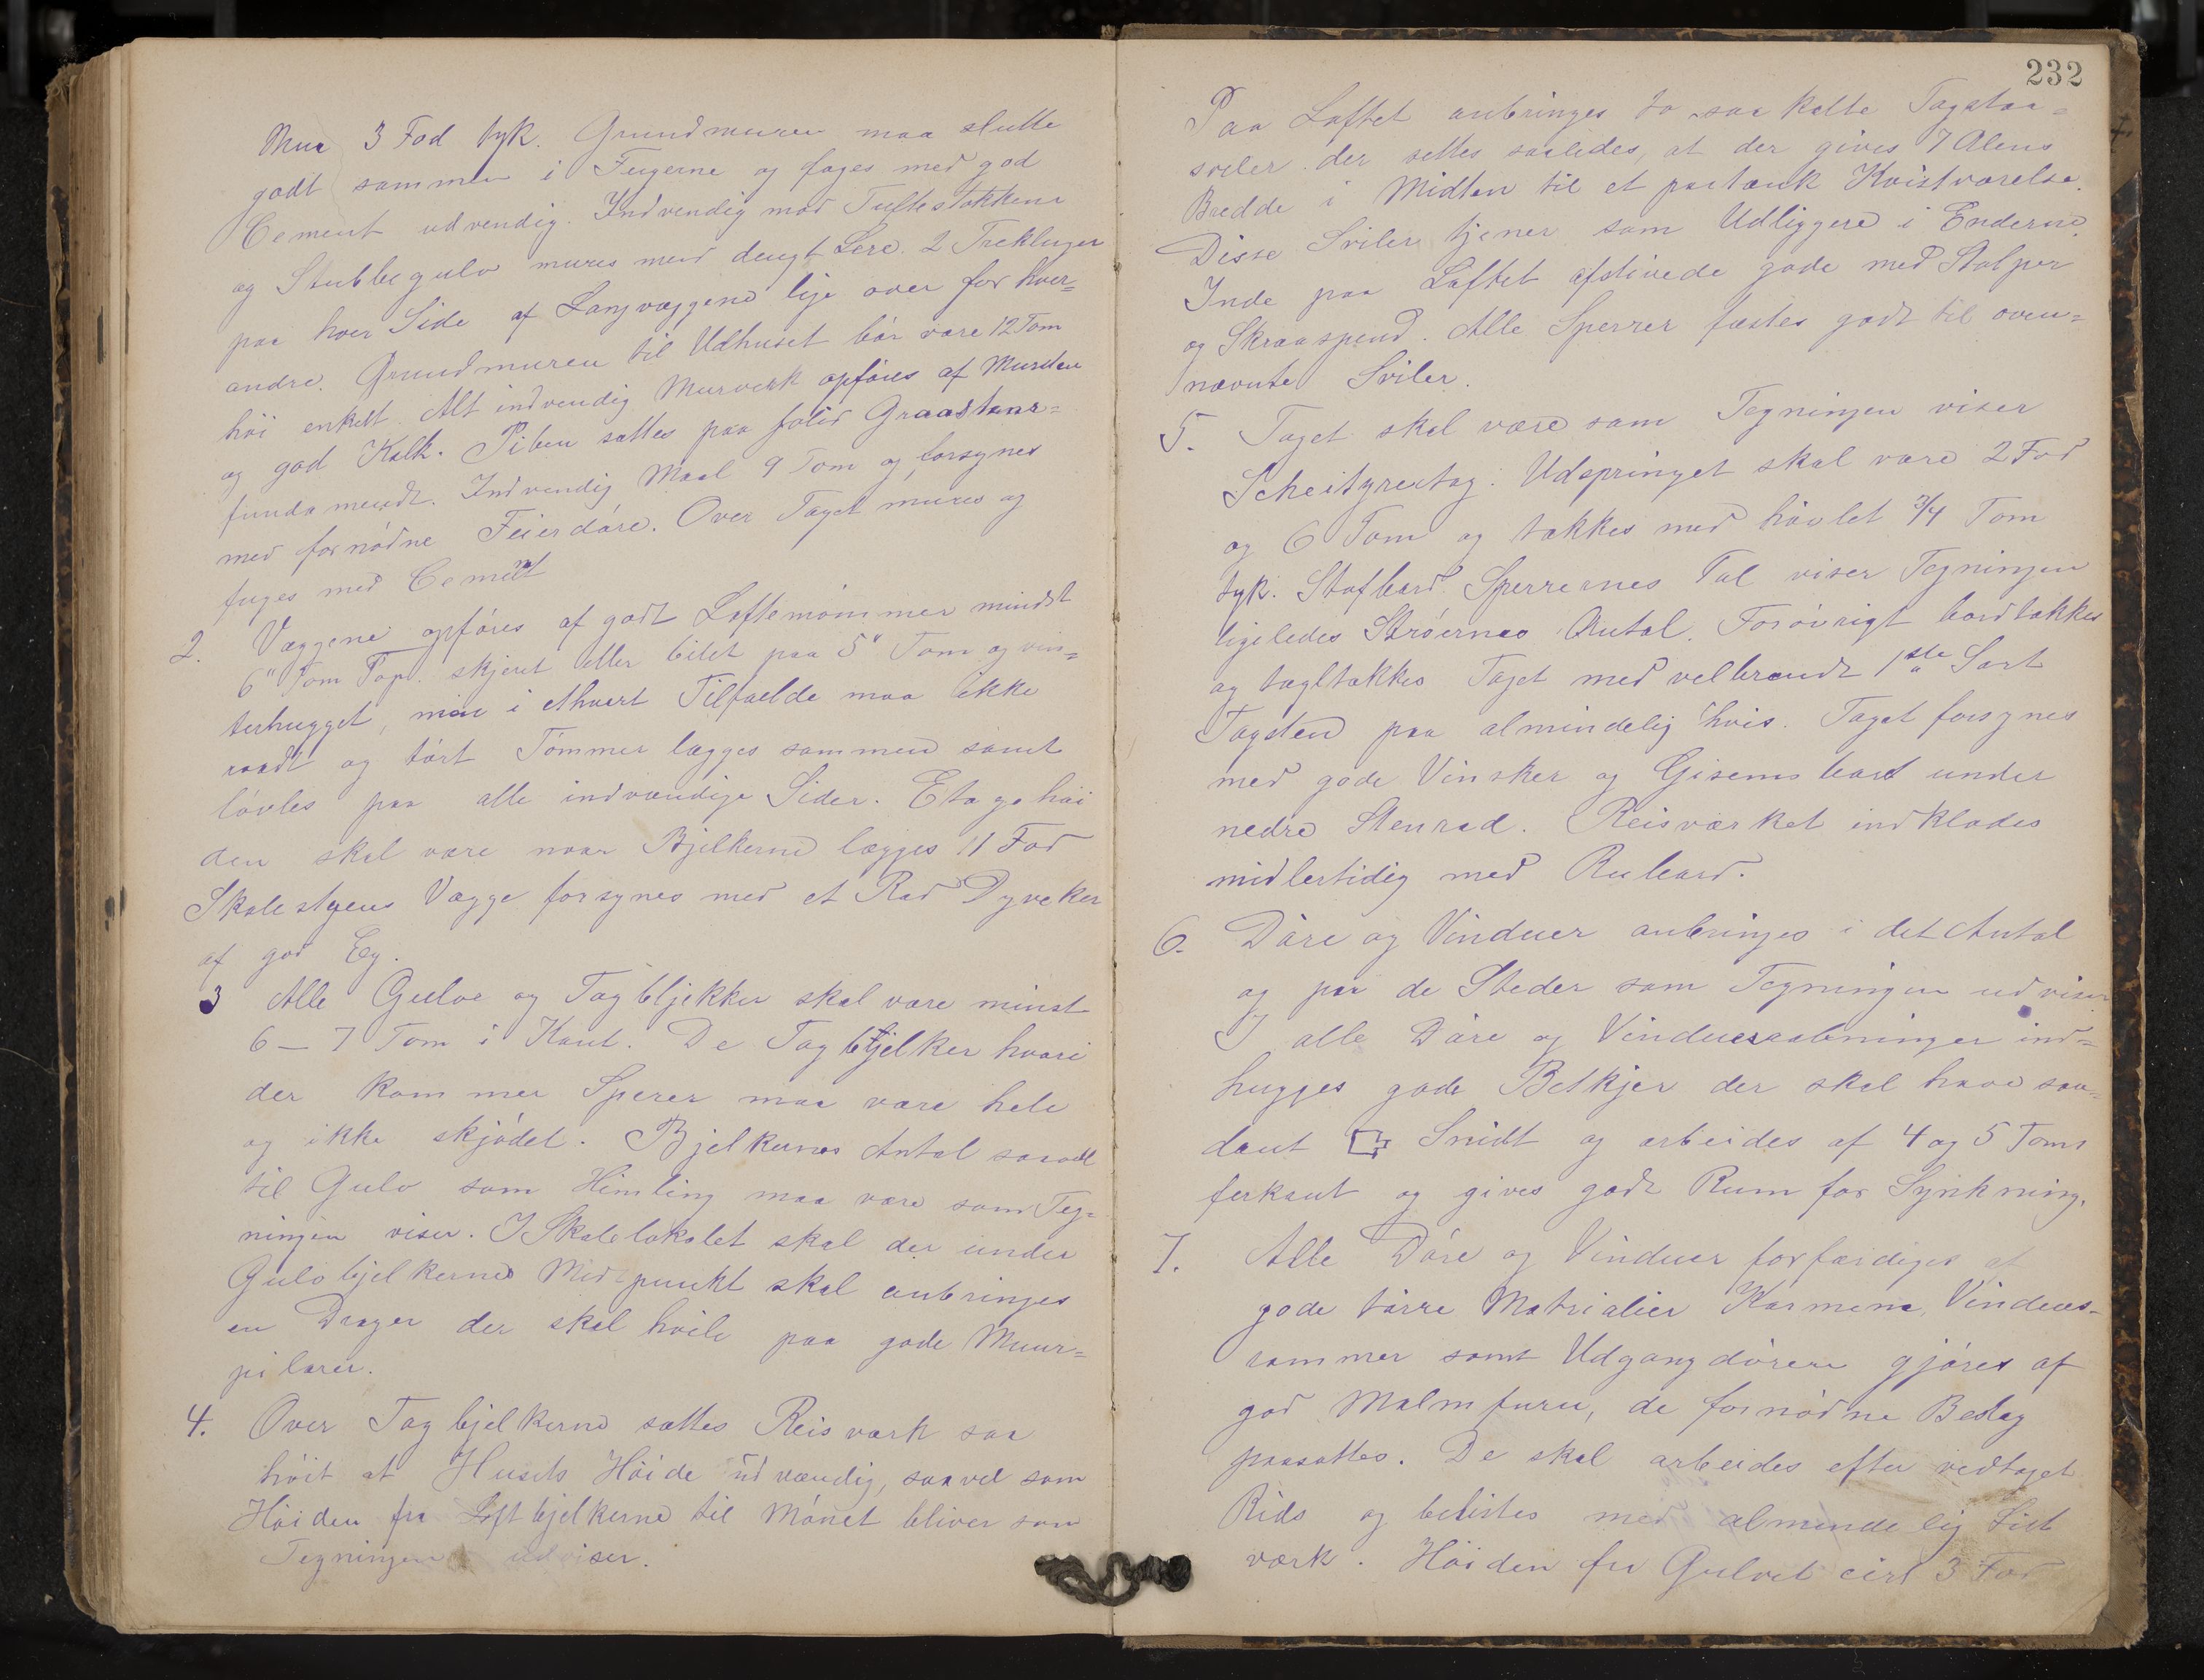 Mur 3 Fod tyk. Grundmuren maa slutte
godt sammen i Fugerne og fuges med god
Cement udvendig. Indvendig mod Tuftestokkene
og Stubbegulv mures med dengt Lere. 2 Trekluger
paa hver Side af Langvæggene lige over for hver=
andre. Grundmuren til Udhuset bør være 12 Tom
høi enkelt. Alt indvendig Murverk opføres af Mursten
og god Kalk. Piben sættes paa solid Graastens=
fundament. Indvendig Maal 9 Tom og forsynes
med fornødne Feierdøre. Over Taget mures og
fuges med Cement
2. Væggene opføres af godt Laftetømmer mindst
6" Tom Top. skjeret eller bilet paa 5" Tom og vin=
terhugget, men i ethvert Tilfælde maa ikke
raadt og tørt Tømmer lægges sammen samt
løvles paa alle indvændige Sider. Etagehøi
den skal være naar Bjelkerne lægges 11 Fod
Skolestuens Vægge forsynes med et Rad Dyveker
af god Eg.
3 Alle Gulve og Tagbljekker skal være minst
6 – 7 Tom i Kant. De Tagbjelker hvori
der kommer Sperer maa være hele
og ikke skjødet. Bjelkernes Antal saavel
til Gulv som Himling maa være som Teg=
ningen viser. I Skolelokalet skal der under
Gulvbjelkernes Midpunkt skal anbringes
en Drager der skal hvile paa gode Muur=
pilarer.
4. Over Tagbjelkerne sættes Reisværk saa
høit at Husets Høide udvændig, saavel som
Høiden fra Loftbjelkerne til Mønet bliver som
Tegningen udviser.
232
Paa Loftet anbringes to saa kalte Tagstas=
sviler der settes saaledes, at der gives 7 Alens
Bredde i Midten til et paatænk Kvistværelse.
Disse Sviler tjener som Udliggere i Enderne.
Inde paa Loftet afstivede gode med Stolper
og Skraaspend. Alle Sperrer fæstes godt til oven=
nævnte Sviler.
5. Taget skal være som Tegningen viser
Scheitzrertag. Udspringet skal være 2 Fod
og 6 Tom og tækkes med høvlet 3/4 Tom
tyk. Stafbord Sperrernes Tal viser Tegningen
ligeledes Strøernes Antal. Forøvrigt bordtækkes
og tægltækkes Taget med velbrændt 1ste Sort
Tagsten paa almindelig Vis. Taget forsynes
med gode Vinsker og Gisemsbord under
nedre Stenrad. Reisværket indklædes
midlertidig med Rubord.
6. Døre og Vinduer anbringes i det Antal
og paa de Steder som Tegningen udviser
I alle Døre og Vinduesaabninger ind=
hugges gode Betkjer der skal have saa=
dant Snidt og arbeides af 4 og 5 Toms
ferkant og gives godt Rum for Synkning.
7. Alle Døre og Vinduer forfærdiges af
gode tørre Matrialier Karmene, Vindues-
rammer samt Udgangdøren gjøres af
god Malmfuru, de fornødne Beslag
paasættes. De skal arbeides efter vedtaget
Rids og belistes med almindelig List
værk. Høiden fra Gulvet cirk 3 Fod